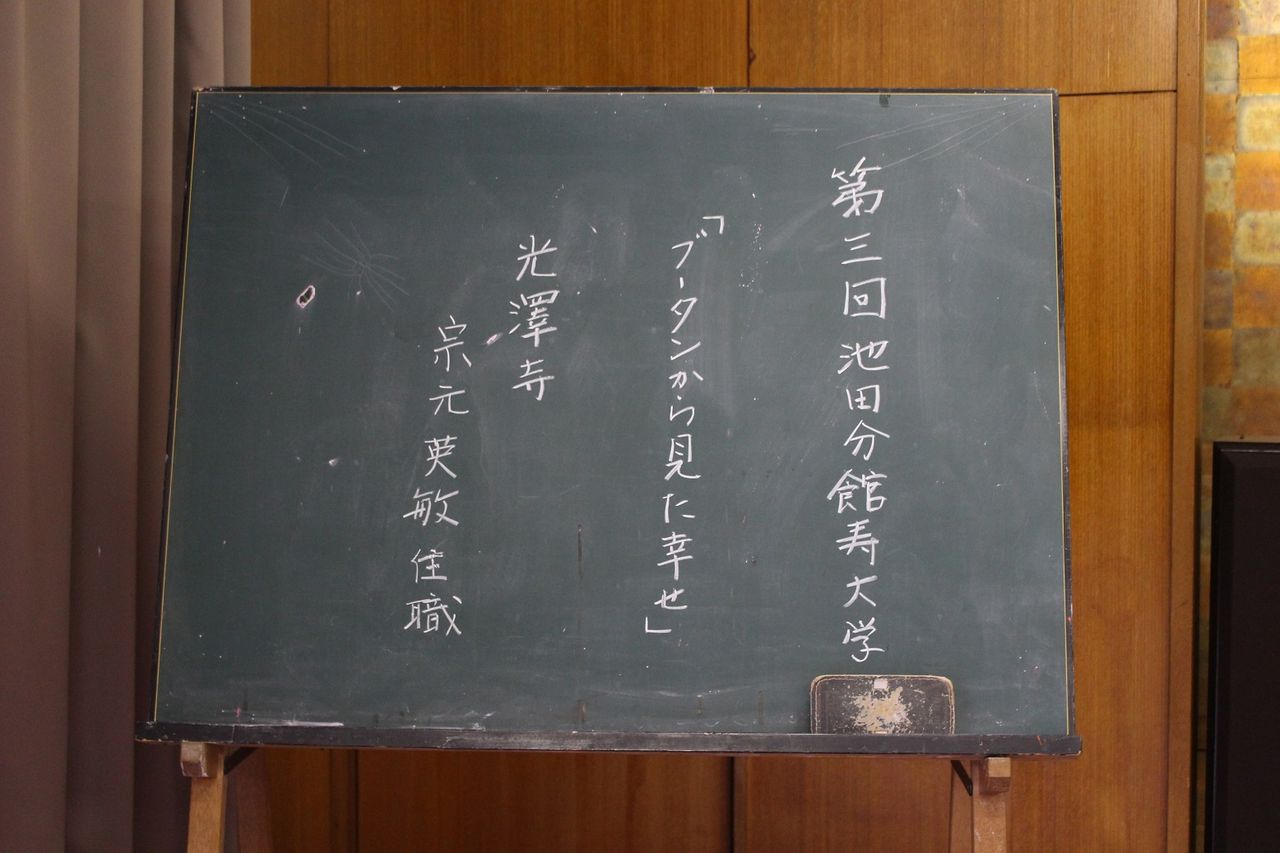 第三回池田分館寿大学
「ブータンから見た幸せ」
光澤寺
宗元英敏住職